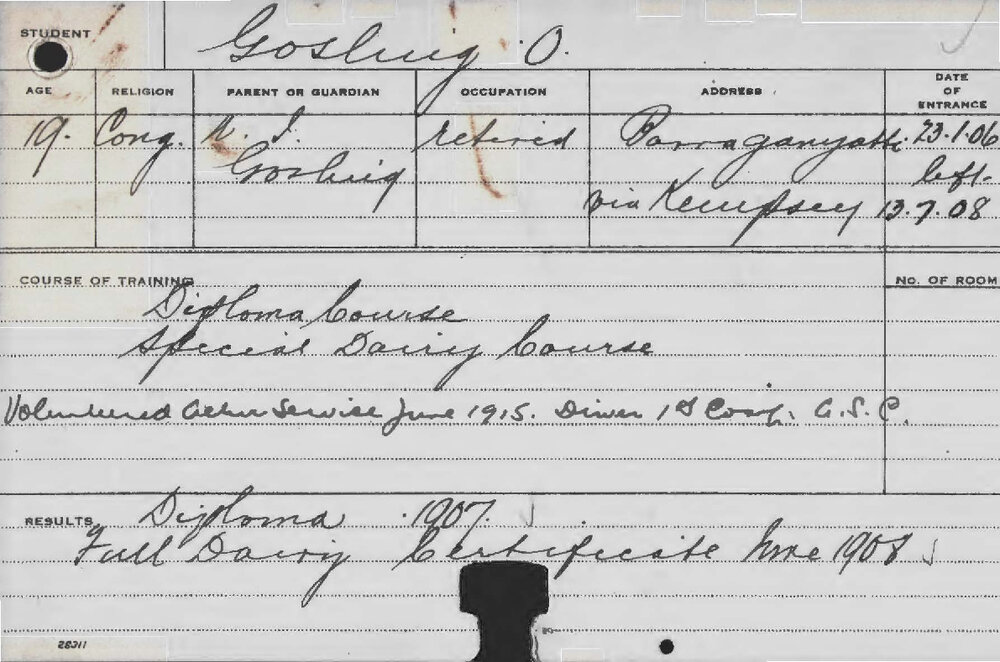 STUDENT Gosling. O.
AGE RELIGION PARENT OR GUARDIAN OCCUPATION ADDRESS DATE OF ENTRANCE
19. Cong. I. retired 23.1.06
Gosling left-
via Kempsey 13.7.08
COURSE OF TRAINING No. OF ROOM
Diploma Course
Special Dairy Course
Volunteered Active Service June 1915. 1st A.S.C.
RESULTS Diploma 1907.
Full Dairy Certificate June 1908
28311